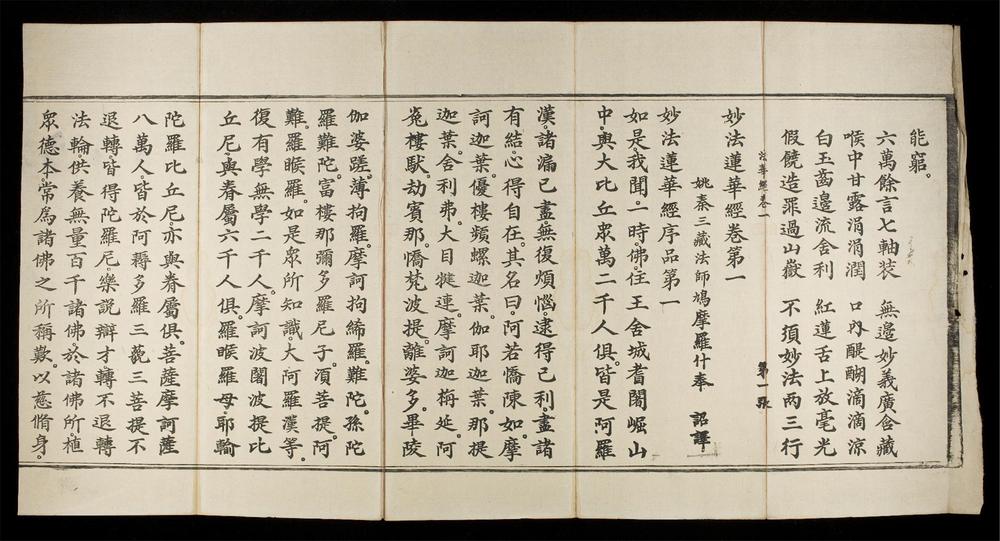 能窮。
六萬餘言七軸装　無邊妙義廣含藏
喉中甘露涓涓潤　口内醍醐滴滴涼
白玉齒邊流舍利　紅蓮舌上放毫光
假饒造罪過山嶽　不須妙法两三行
法華經卷一　第一張
妙法蓮華經卷第一
姚秦三藏法師鳩摩羅什奉　詔譯
妙法蓮華經序品第一
如是我聞。一時。佛住王舍城耆闍崛山
中。與大比丘衆萬二千人俱。皆是阿羅
漢。諸漏已盡。無復煩惱。逮得己利。盡諸
有結。心得自在。其名曰。阿若憍陳如。摩
訶迦葉。優樓頻螺迦葉。伽耶迦葉。那提
迦葉。舍利弗。大目犍連。摩訶迦栴延。阿
㝹樓馱。劫賓那。憍梵波提。離婆多。畢陵
伽婆蹉。薄拘羅。摩訶拘絺羅。難陀。孫陀
羅難陀。富樓那彌多羅尼子。湏菩提。阿
難。羅睺羅。如是衆所知識。大阿羅漢等。
復有學無學二千人。摩訶波闍波提比
丘尼。與眷屬六千人俱。羅睺羅母。耶輸
陀羅比丘尼。亦與眷屬俱。菩薩摩訶薩
八萬人。皆於阿耨多羅三藐三菩提不
退轉。皆得陀羅尼。樂説辯才。轉不退轉
法輪。供養無量百千諸佛。於諸佛所植
衆德本。常爲諸佛之所稱歎。以慈脩身。